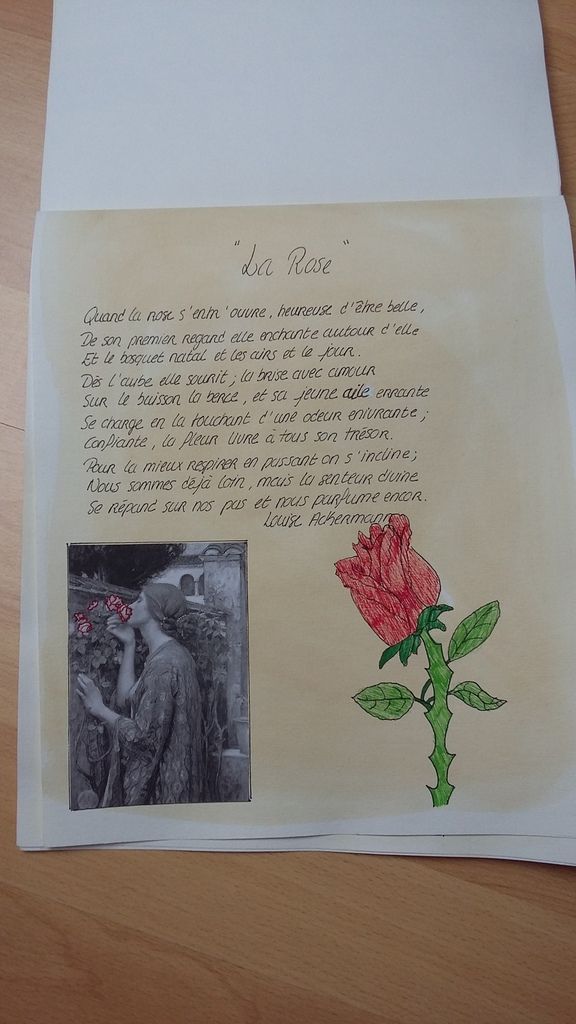 "La Rose"
Quand la rose s'entr'ouvre, heureuse d'être belle,
De son premier regard elle enchante autour d'elle
Et le bosquet natal et les airs et le jour.
Dès l'aube elle sourit ; la brise avec amour
Sur le buisson la berce, et sa jeune aile errante
Se charge en la touchant d'une odeur enivrante ;
Confiante, la fleur livre à tous son trésor.
Pour la mieux respirer en passant on s'incline ;
Nous sommes déjà loin, mais la senteur divine
Se répand sur nos pas et nous parfume encor.
Louise Ackermann